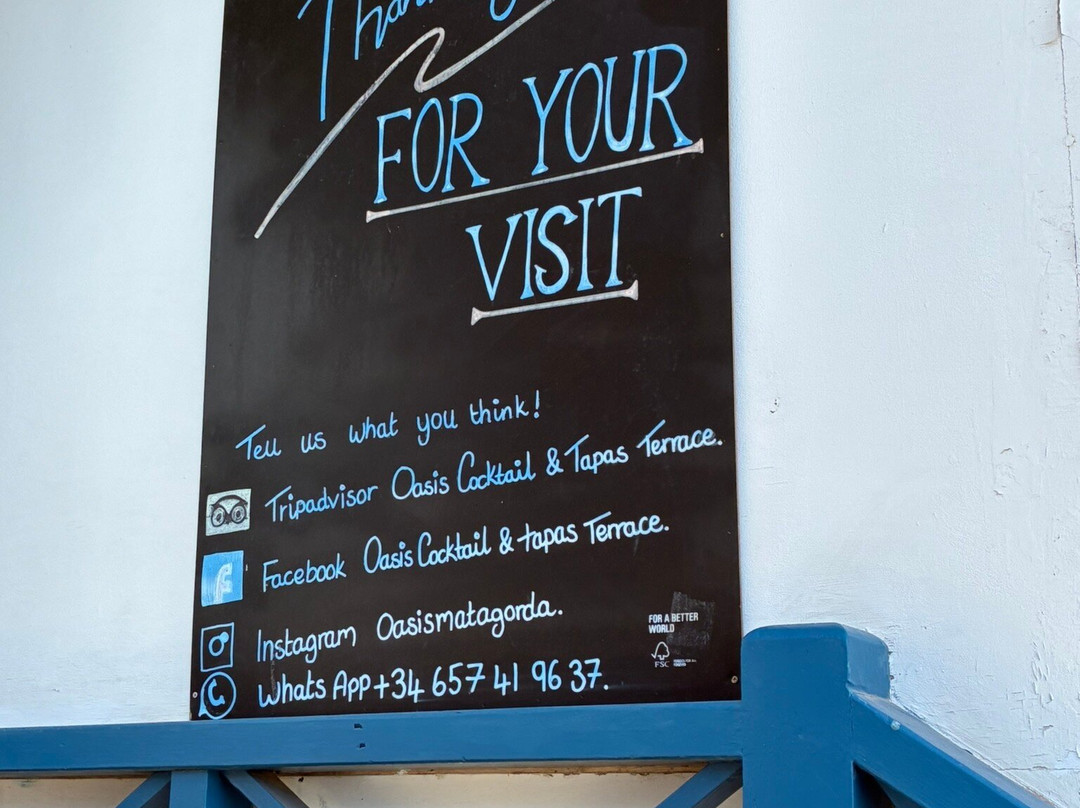 FOR YOUR
VISIT
Tell us what you think!
Tripadvisor Oasis Cocktail & Tapas Terrace.
Facebook Oasis Cocktail & tapas Terrace.
Instagram Oasismatagorda.
Whats App +34 657 41 96 37.
FOR A BETTER
WORLD
FSC